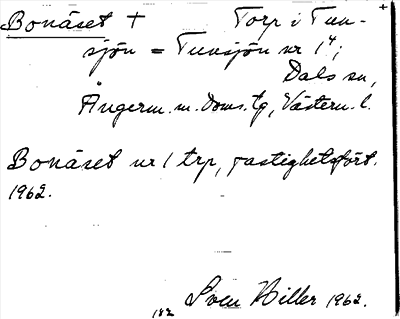 Bonäset + Torp i Tun-
sjön = Tunsjön nr 1⁴;
Dals sn,
Ångerm. m. Doms. tg, Västern. l.
Bonäset nr 1 trp, fastighetsfört.
1962.
182 Sven Hiller 1962.